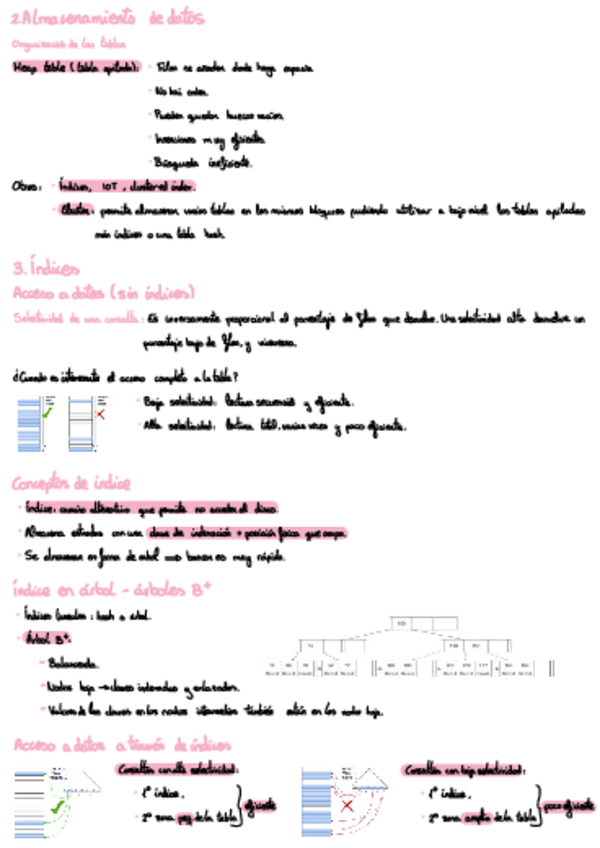 2. Almacenamiento de datos
Organización de las tablas
Heap table (tabla apilada): · Filas se añaden donde haya espacio.
· No hai orden.
· Pueden quedar huecos vacíos.
· Inserciones muy eficientes.
· Búsqueda ineficiente.
Otros: · Índices, IOT, clustered index.
· Cluster: permite almacenar varias tablas en los mismos bloques pudiendo utilizar a bajo nivel las tablas apiladas
más índices o una tabla hash.
3. Índices
Acceso a datos (sin índices)
Selectividad de una consulta: Es inversamente proporcional al porcentaje de filas que devuelve. Una selectividad alta devuelve un
porcentaje bajo de filas, y viceversa.
¿Cuando es interesante el acceso completo a la tabla?
· Baja selectividad: lectura secuencial y eficiente.
· Alta selectividad: lectura varias veces y poco eficiente.
Conceptos de índice
· Índice: camino alternativo que permite no acceder al disco.
· Almacena entradas con una clave de indexación + posición física que ocupa.
· Se almacenan en forma de árbol muy rápida.
Índice en árbol - árboles B+
· Índices : hash o árbol.
· Árbol B+:
- Balanceado.
- Nodos hoja → claves y enlazadas.
- Valores de las claves en los nodos intermedios también están en los nodos hoja.
Acceso a datos a través de índices
Consultas con alta selectividad:
· 1º índice.
· 2º zona peq. de la tabla } eficiente
Consultas con baja selectividad:
· 1º índice.
· 2º zona amplia de la tabla } poco eficiente